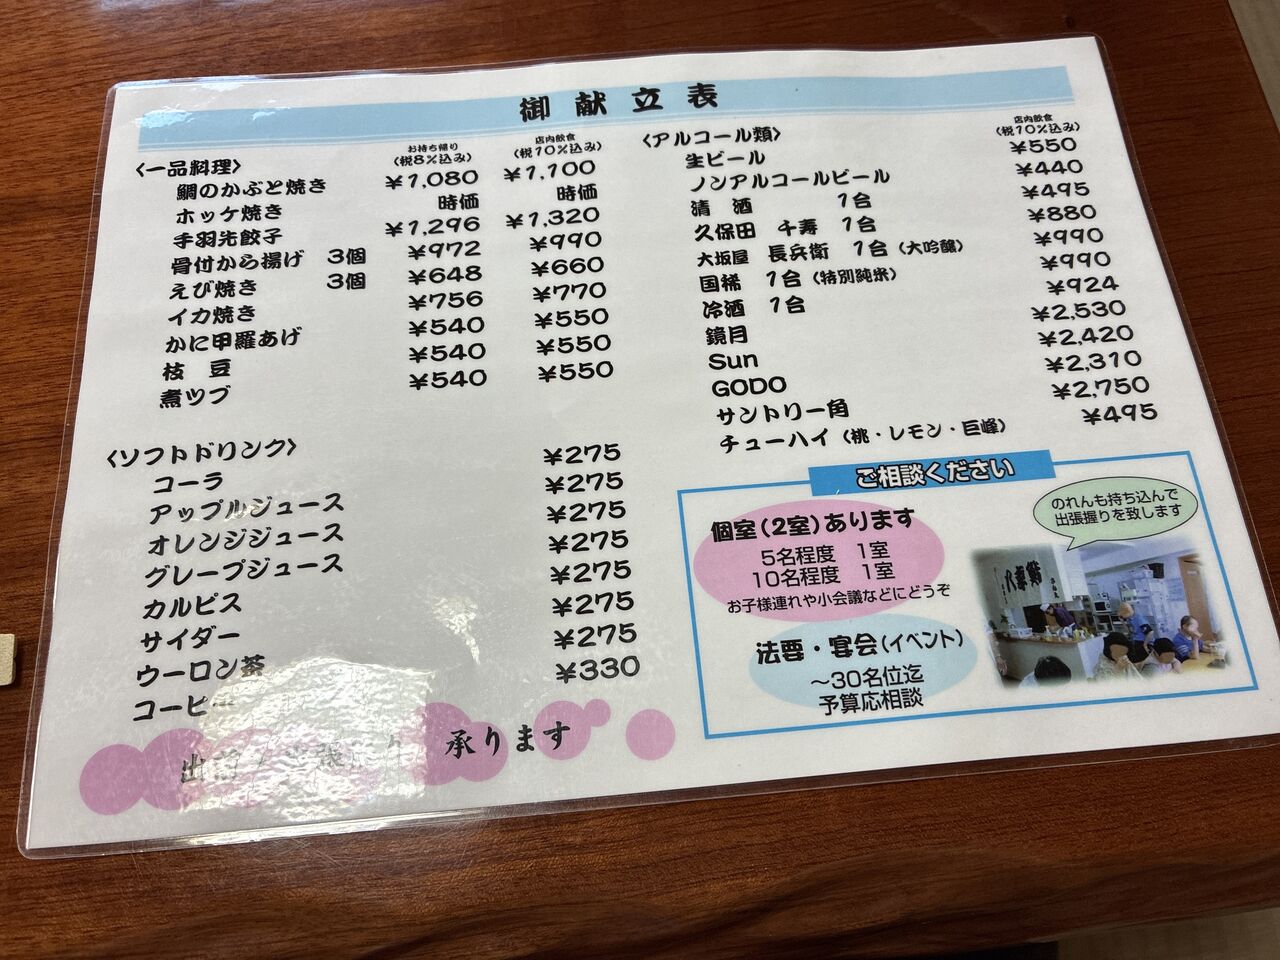 御献立表
〈一品料理〉 お持ち帰り（税8%込み） 店内飲食（税10%込み）
鯛のかぶと焼き ¥1,080 ¥1,100
ホッケ焼き 時価 時価
手羽先餃子 ¥1,296 ¥1,320
骨付から揚げ 3個 ¥972 ¥990
えび焼き 3個 ¥648 ¥660
イカ焼き ¥756 ¥770
かに甲羅あげ ¥540 ¥550
枝豆 ¥540 ¥550
煮ツブ ¥540 ¥550
〈ソフトドリンク〉
コーラ ¥275
アップルジュース ¥275
オレンジジュース ¥275
グレープジュース ¥275
カルピス ¥275
サイダー ¥275
ウーロン茶 ¥275
コーヒー ¥330
承ります
〈アルコール類〉 店内飲食（税10%込み）
生ビール ¥550
ノンアルコールビール ¥440
清酒 1合 ¥495
久保田 千寿 1合 ¥880
大坂屋 長兵衛 1合（大吟醸） ¥990
国稀 1合（特別純米） ¥990
冷酒 1合 ¥924
鏡月 ¥2,530
Sun ¥2,420
GODO ¥2,310
サントリー角 ¥2,750
チューハイ（桃・レモン・巨峰） ¥495
ご相談ください
個室（2室）あります
5名程度 1室
10名程度 1室
お子様連れや小会議などにどうぞ
法要・宴会（イベント）
～30名位迄
予算応相談
のれんも持ち込んで
出張握りを致します